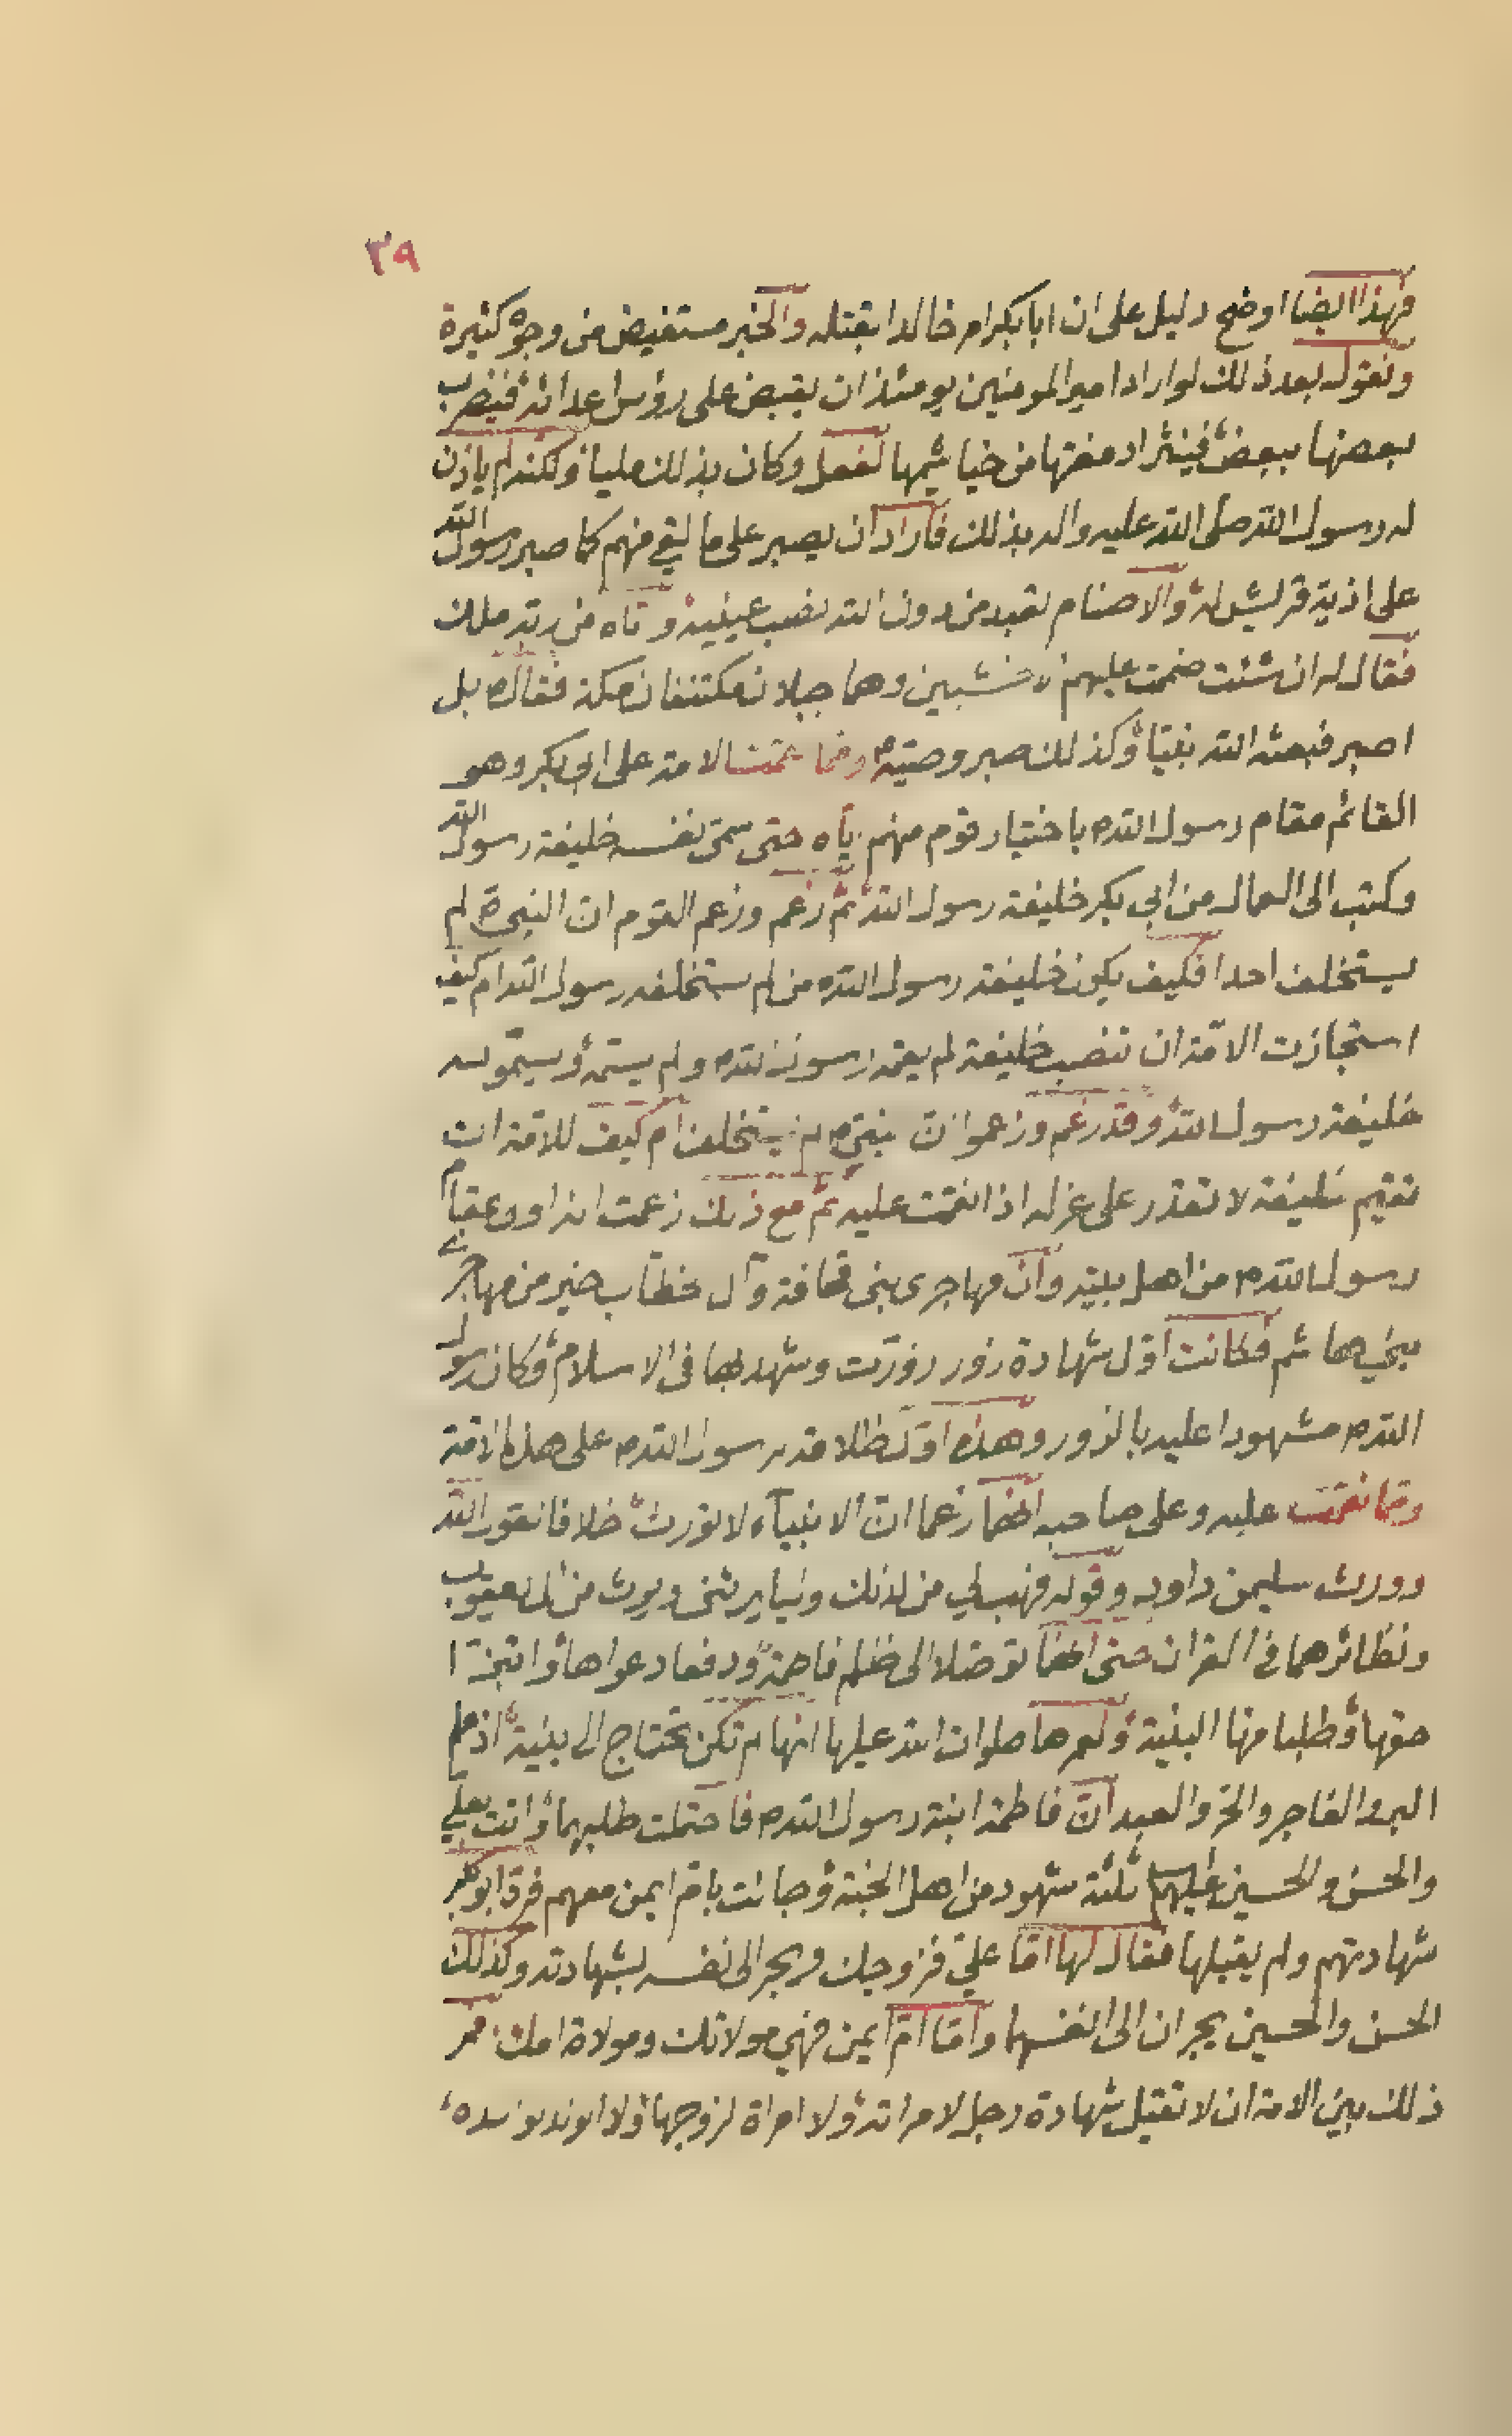 ٣٩
فهذا ايضا اوضح دليل على ان ابا بكر امر خالدا بقتله والخبر مستفيض من وجوه كثيرة
ونقول بعد ذلك لو اراد امير المومنين يومئذ ان يقبض على رؤس اعدائه فيضرب
بعضها ببعض فينثر ادمغتها من خياشيمها لفعل وكان بذلك مليا ولكنه لم ياذن
له رسول الله صلى الله عليه واله بذلك فاراد ان يصبر على ما لقي منهم كما صبر رسول الله
على اذية قريش له والاصنام تعبد من دون الله نصب عينيه و تاه من ربه ملك
فقال له ان شئت ضممت عليهم خشبين وهما جبلان مكتنفان مكة فقال بل
اصبر فبعثه الله نبيا وكذلك صبر وصيه ومما نقمت الامة على ابي بكر وهو
القائم مقام رسول الله باختيار قوم منهم اياه حتى سمى نفسه خليفة رسول الله
وكتب الى العمال من ابي بكر خليفة رسول الله ثم زعم وزعم القوم ان النبي لم
يستخلف احدا فكيف يكون خليفة رسول الله من لم يستخلفه رسول الله ام كيف
استجازت الامة ان تنصب خليفة لم يقمه رسول الله ولم يسمه ويسموه
خليفة رسول الله وقد زعم وزعموا ان النبي لم يستخلف ام كيف للامة ان
تقيم خليفة لا تقدر على عزله اذا نقمت عليه ثم مع ذلك زعمت انه اولى بمقام
رسول الله من اهل بيته وان مهاجرى بني قحافة وآل خطاب خير من مهاجرى
بني هاشم فكانت اول شهادة زور زورت وشهد بها فى الاسلام وكان رسول
الله مشهودا عليه بالزور وهذه اول ظلامة لرسول الله على هذه الامة
ومما نقمت عليه وعلى صاحبه انهما زعما ان الانبياء لا تورث خلافا لقول الله
وورث سليمن داود وقوله فهب لي من لدنك وليا يرثنى ويرث من ال يعقوب
ونظائرهما فى القران حتى انهما توصلا الى ظلم فاطمة ودفعا دعواها وابتزا
حقها وطلبا منها البينة ولعمرها صلوات الله عليها انها لم تكن تحتاج الى بينة اذ علم
البر والفاجر والحر والعبد ان فاطمة ابنة رسول الله فاحتملت طلبهما واتت بعلي
والحسن والحسين عليهم السلام ثلثة شهود من اهل الجنة وجائت بام ايمن معهم فرد ابو بكر
شهادتهم ولم يقبلها فقال لها اما علي فزوجك ويجر الى نفسه بشهادته وكذلك
الحسن والحسين يجران الى انفسهما واما ام ايمن فهي مولاتك ومولاة امك
ذلك بين الامة ان لا تقبل شهادة رجل لامراته ولا امراة لزوجها ولا